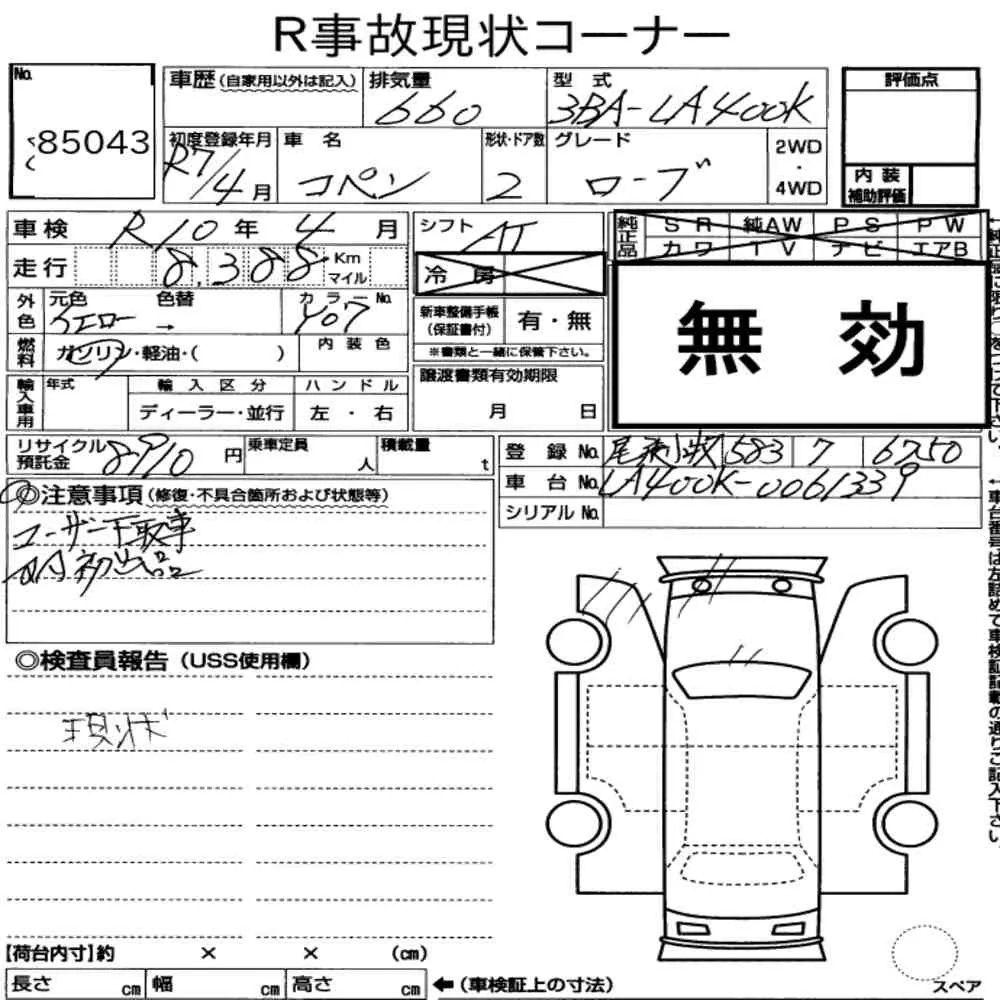 R事故現状コーナー
No.
85043
車歴(自家用以外は記入)
排気量
660
型式
3BA-LA400K
評価点
初度登録年月
R7/4月
車名
コペン
形状・ドア数
2
グレード
ローブ
2WD
・
4WD
内装
補助評価
車検 R10年 4月
シフト AT
純正品
SR 純AW PS PW
カワ TV ナビ エアB
走行 8,388 Km
マイル
冷房
無効
外色
元色 イエロー
色替 →
カラーNo. Y07
新車整備手帳
(保証書付)
有・無
※書類と一緒に保管下さい。
燃料
ガソリン・軽油・( )
内装色
輸入車用
年式
輸入区分
ディーラー・並行
ハンドル
左・右
譲渡書類有効期限
月 日
リサイクル
預託金
8910円
乗車定員
人
積載量
t
登録No. 583 6750
車台No. LA400K-0061339
シリアルNo.
◎注意事項(修復・不具合箇所および状態等)
ユーザー下取車
初出品
◎検査員報告(USS使用欄)
現状
【荷台内寸】約 × × (cm)
長さ cm
幅 cm
高さ cm
←(車検証上の寸法)
スペア
←車台番号は左詰めて車検証記載の通りご記入下さい。